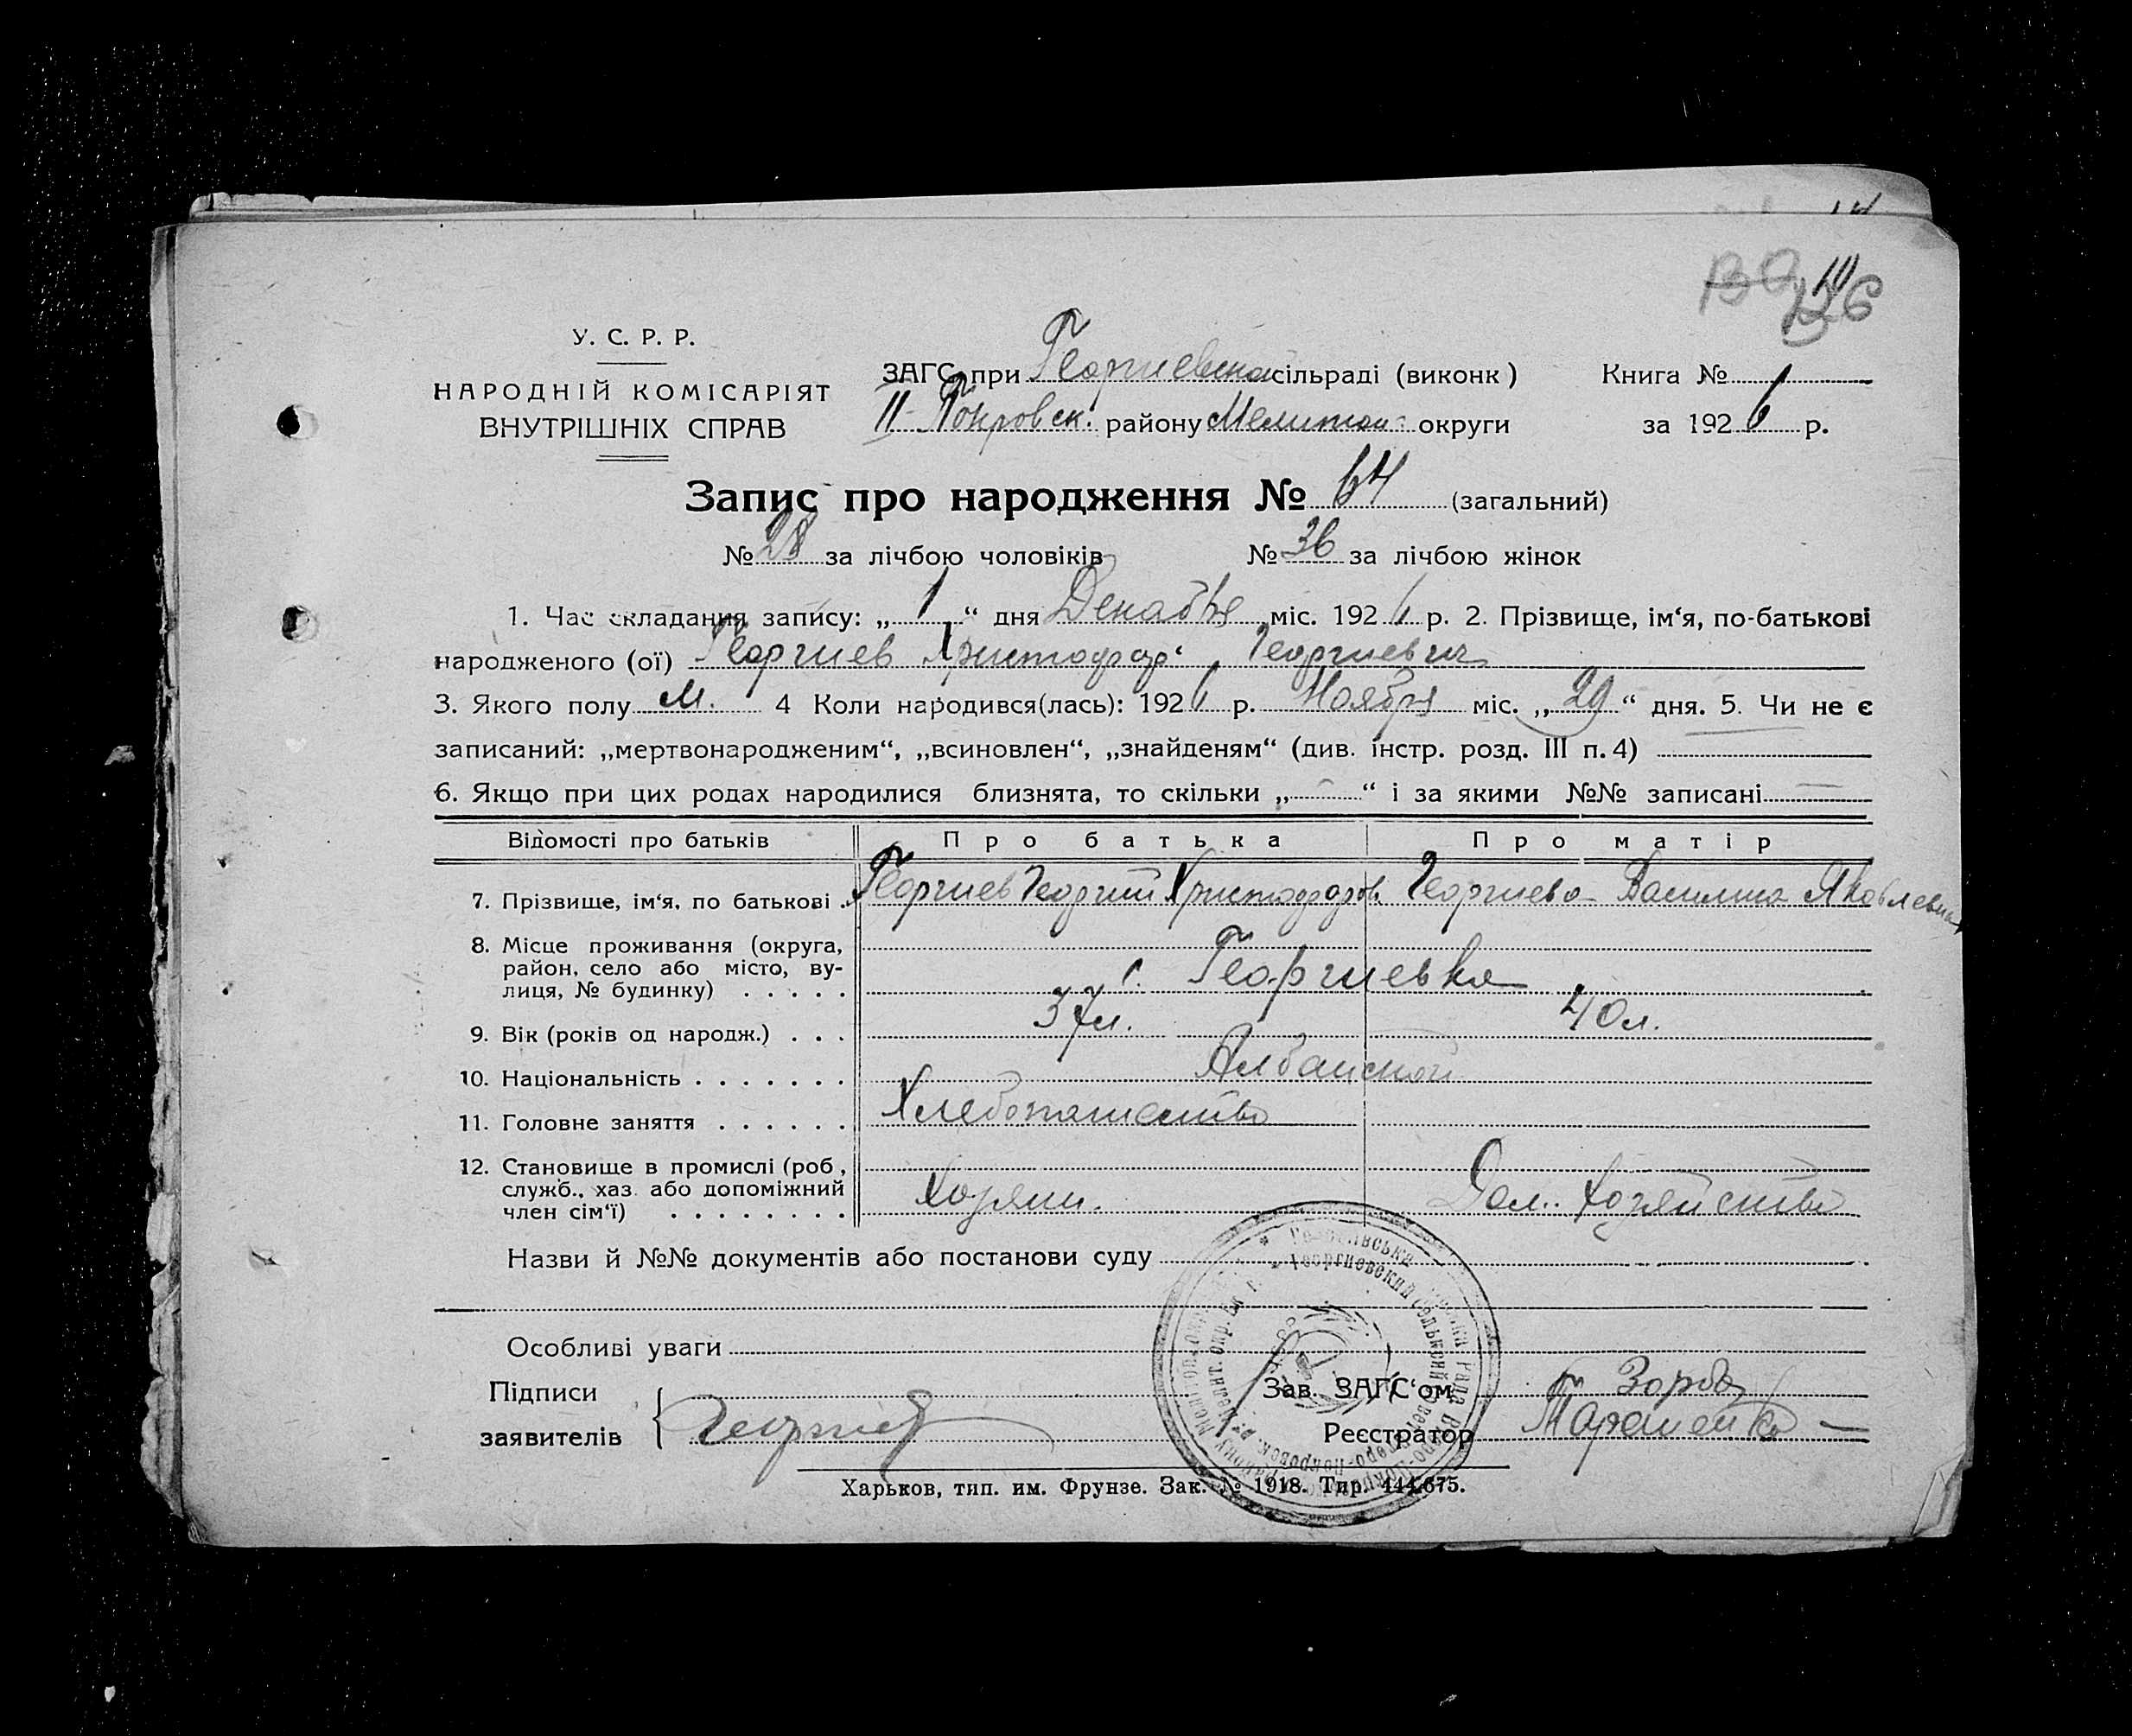 126
У. С. Р. Р.
НАРОДНІЙ КОМІСАРІЯТ
ВНУТРІШНІХ СПРАВ
ЗАГС при Георгиевской сільраді (виконк)
II-Покровск. району Мелитоп. округи
Книга №
за 1926 р.
Запис про народження № 64 (загальний)
№ 28 за лічбою чоловіків № 36 за лічбою жінок
1. Час складання запису: „ 1 “ дня Декабря міс. 1926 р. 2. Прізвище, ім‘я, по-батькові
народженого (ої) Георгиев Христофор Георгиевич
3. Якого полу м. 4 Коли народився(лась): 1926 р. Ноября міс. „ 29 “ дня. 5. Чи не є
записаний: „мертвонародженим“, „всиновлен“, „знайденям“ (див. інстр. розд. III п. 4)
6. Якщо при цих родах народилися близнята, то скільки „ — “ і за якими №№ записані —
Відомості про батьків Про батька Про матір
7. Прізвище, ім‘я, по батькові . Георгиев Георгий Христофоров. Георгиева Василиса Яковлевна
8. Місце проживання (округа,
район, село або місто, ву-
лиця, № будинку) . . . . . с. Георгиевка
9. Вік (років од народж.) . . . 37 л. 40 л.
10. Національність . . . . . . . Албанской
11. Головне заняття . . . . . . Хлебопашество
12. Становище в промислі (роб.,
служб., хаз. або допоміжний
член сім‘ї) . . . . . . . . Хозяин. Дом. Хозяйство
Назви й №№ документів або постанови суду
Особливі уваги
Підписи
заявителів
Георгиев
Зав. ЗАГС‘ом Зорба
Реєстратор
Харьков, тип. им. Фрунзе. Зак. № 1918. Тир. 444.675.